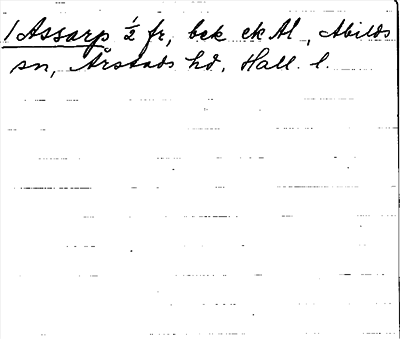 1 Assarp ½ fr, bek ek Al, Abilds
sn, Årstads hd, Hall. l.